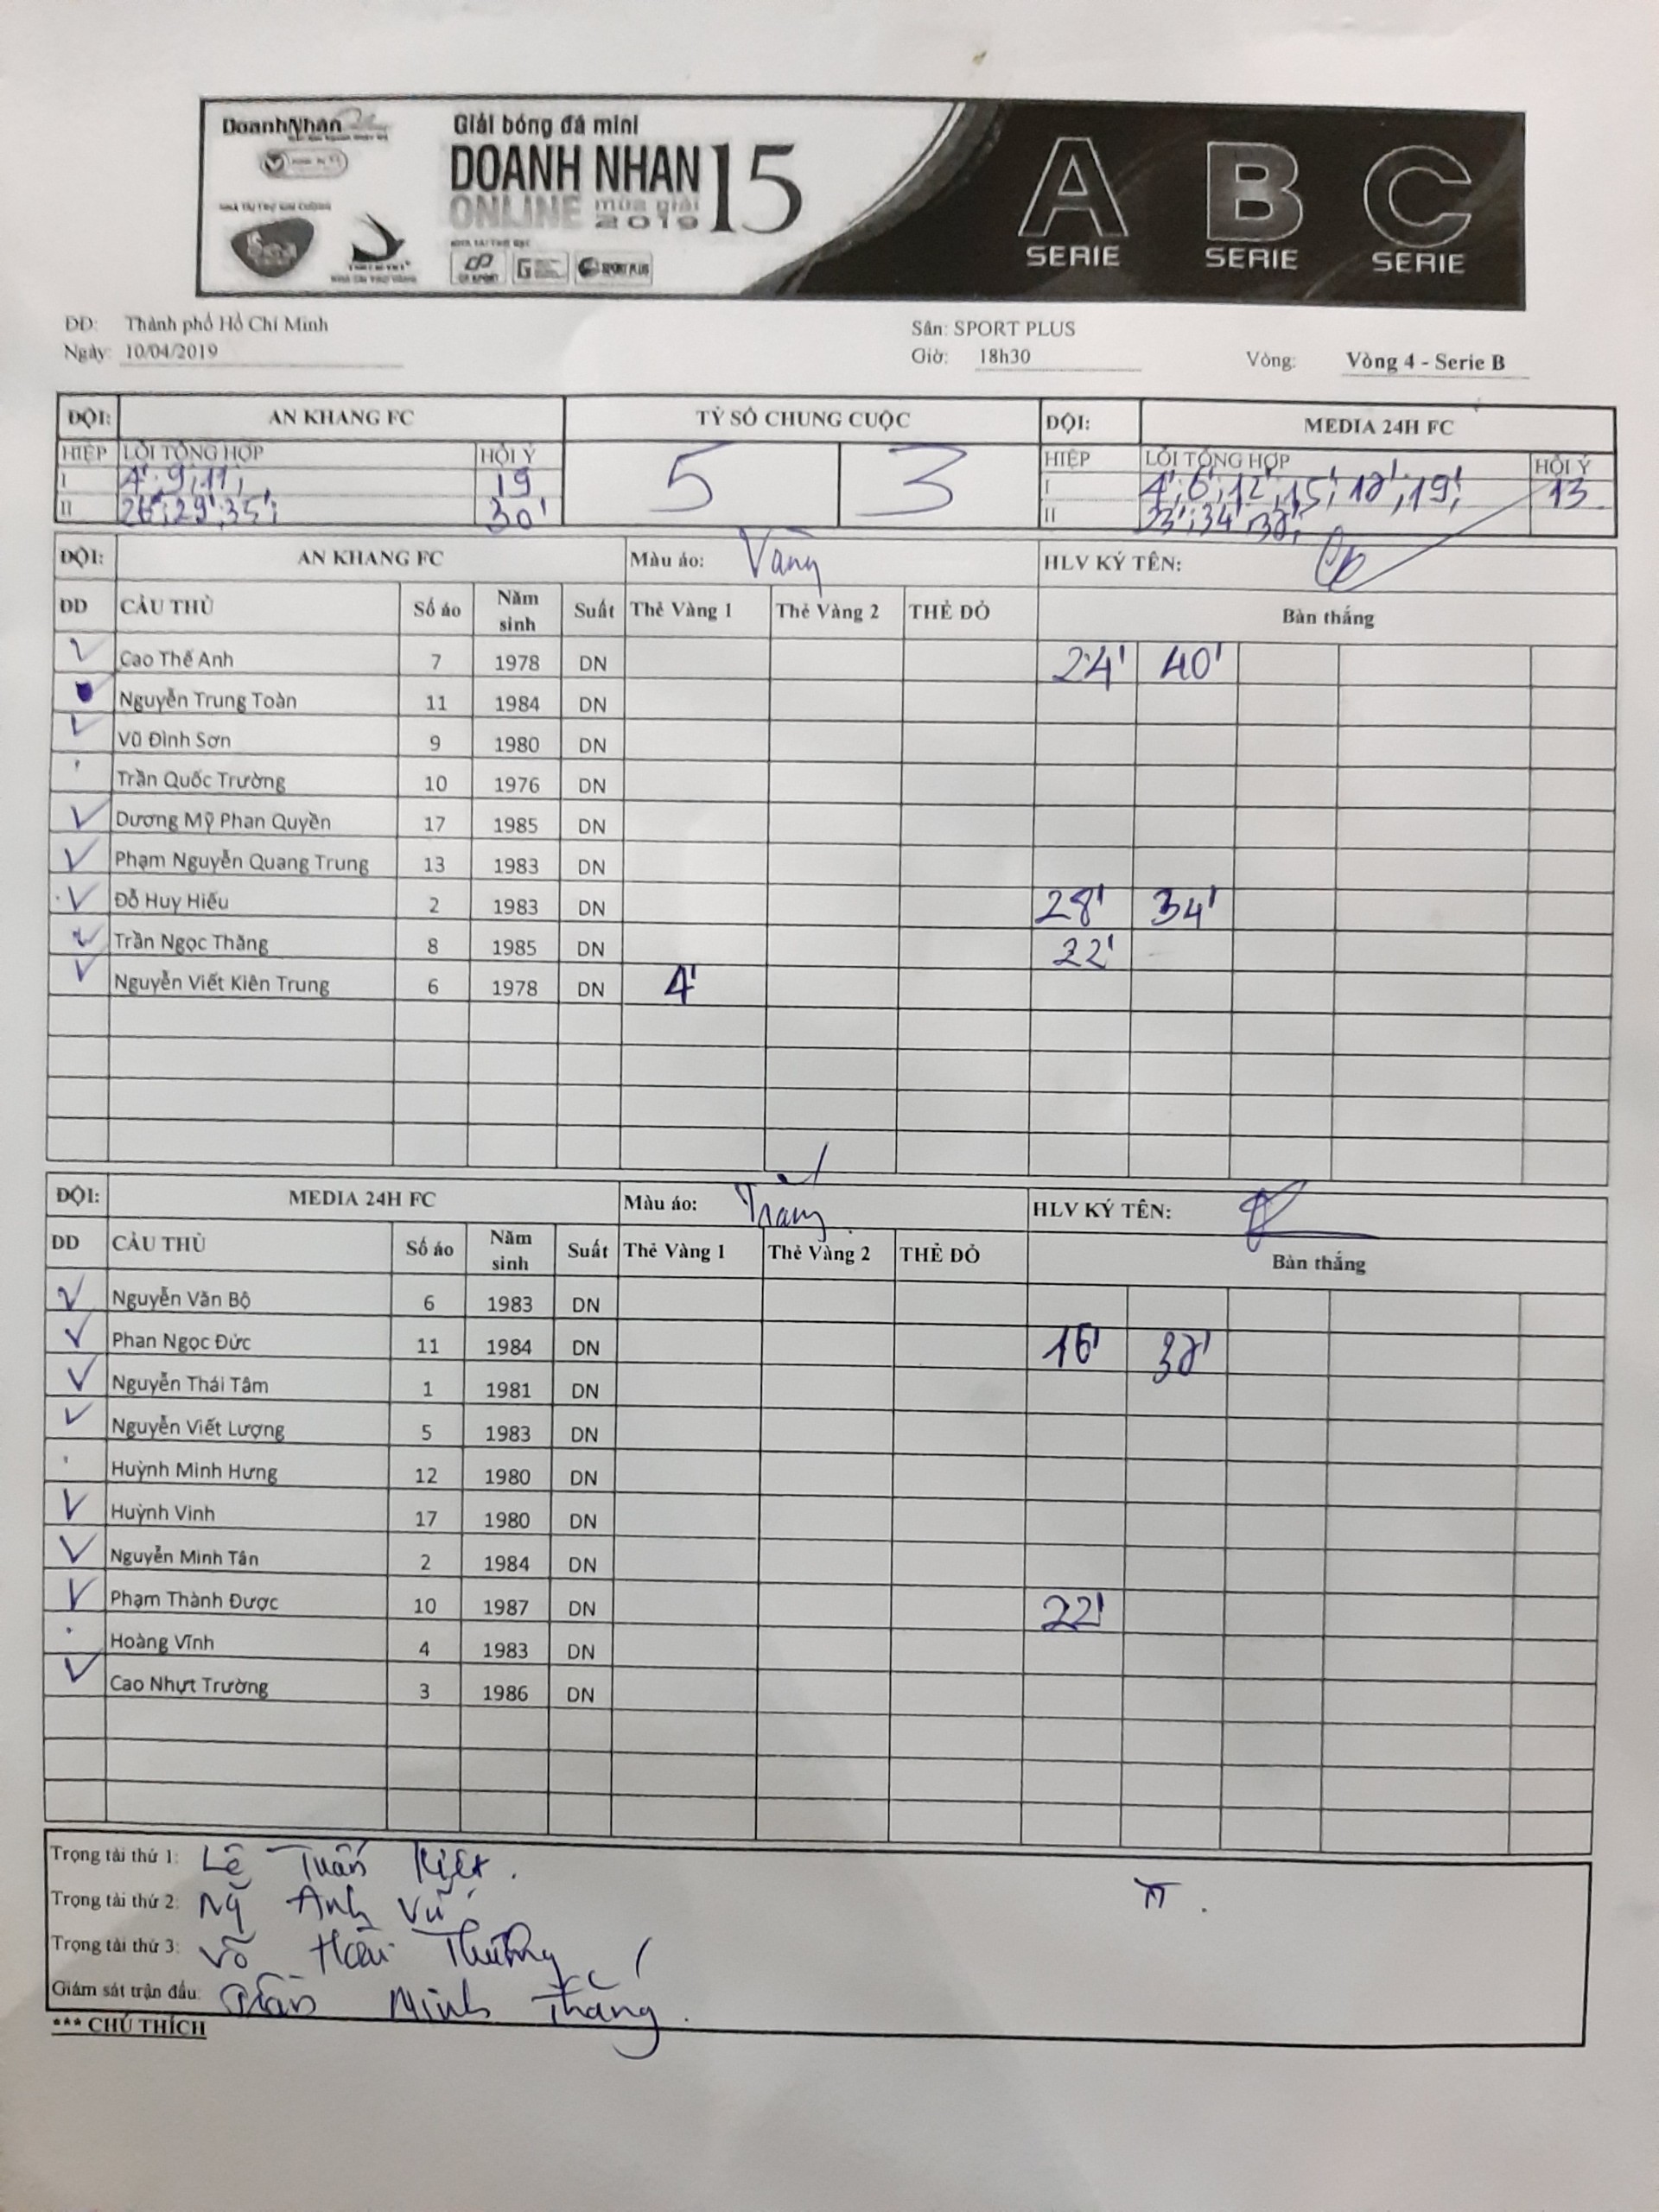 DoanhNhân
Giải bóng đá mini
DOANH NHAN 15
ONLINE mùa giải 2019
A B C
SERIE SERIE SERIE
SPORT PLUS
ĐD: Thành phố Hồ Chí Minh Sân: SPORT PLUS
Ngày: 10/04/2019 Giờ: 18h30 Vòng: Vòng 4 - Serie B
ĐỘI: AN KHANG FC TỶ SỐ CHUNG CUỘC ĐỘI: MEDIA 24H FC
HIỆP LỖI TỔNG HỢP HỘI Ý 5 3 HIỆP LỖI TỔNG HỢP HỘI Ý
I 4'; 9; 11'; 19 I 4'; 6'; 12'; 15'; 18'; 19'; 13
II 26'; 29'; 35'; 30' II 33'; 34' 38';
ĐỘI: AN KHANG FC Màu áo: Vàng HLV KÝ TÊN:
ĐD CẦU THỦ Số áo Năm sinh Suất Thẻ Vàng 1 Thẻ Vàng 2 THẺ ĐỎ Bàn thắng
Cao Thế Anh 7 1978 DN 24' 40'
Nguyễn Trung Toàn 11 1984 DN
Vũ Đình Sơn 9 1980 DN
Trần Quốc Trường 10 1976 DN
Dương Mỹ Phan Quyền 17 1985 DN
Phạm Nguyễn Quang Trung 13 1983 DN
Đỗ Huy Hiếu 2 1983 DN 28' 34'
Trần Ngọc Thăng 8 1985 DN 22'
Nguyễn Viết Kiên Trung 6 1978 DN 4'
ĐỘI: MEDIA 24H FC Màu áo: Trắng HLV KÝ TÊN:
ĐD CẦU THỦ Số áo Năm sinh Suất Thẻ Vàng 1 Thẻ Vàng 2 THẺ ĐỎ Bàn thắng
Nguyễn Văn Bộ 6 1983 DN
Phan Ngọc Đức 11 1984 DN 16' 38'
Nguyễn Thái Tâm 1 1981 DN
Nguyễn Viết Lượng 5 1983 DN
Huỳnh Minh Hưng 12 1980 DN
Huỳnh Vinh 17 1980 DN
Nguyễn Minh Tân 2 1984 DN
Phạm Thành Được 10 1987 DN 22'
Hoàng Vĩnh 4 1983 DN
Cao Nhựt Trường 3 1986 DN
Trọng tài thứ 1: Lê Tuấn Kiệt.
Trọng tài thứ 2: Ng̃ Anh Vũ
Trọng tài thứ 3: Võ Hoài Thương
Giám sát trận đấu: Trần Minh Thắng.
*** CHÚ THÍCH